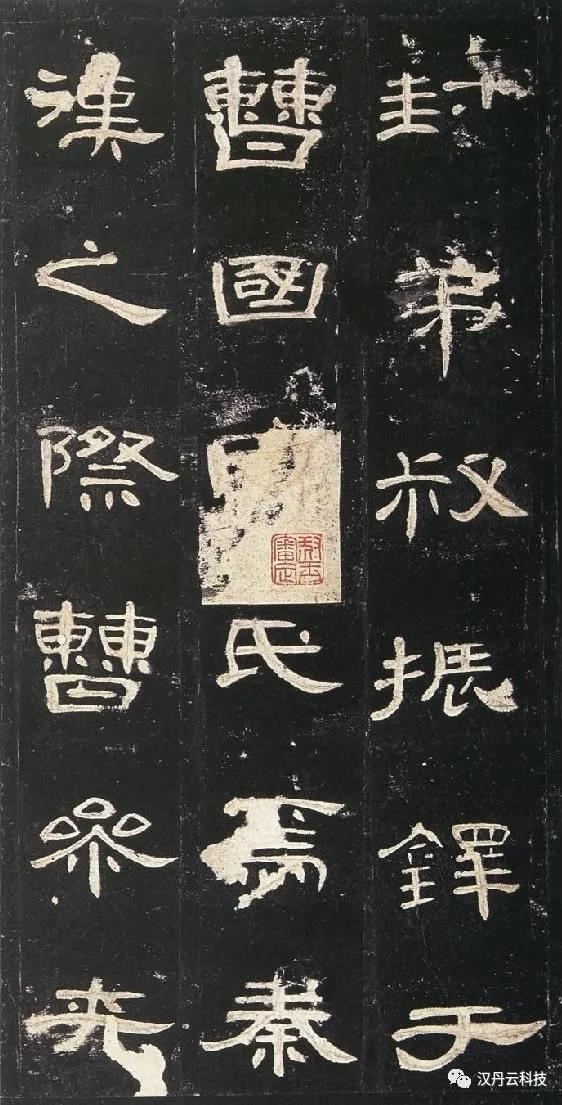 封弟叔振鐸于
曹國氏焉秦
漢之際曹參夾
汉丹云科技